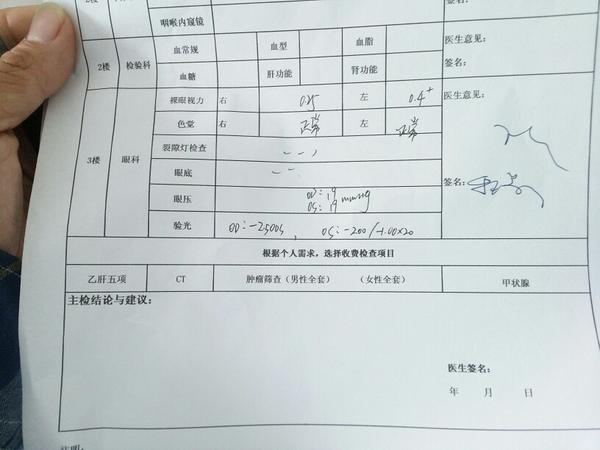 咽喉内窥镜
2楼 检验科 血常规 血型 血脂 医生意见：
血糖 肝功能 肾功能 签名：
3楼 眼科 裸眼视力 右 左 0.4+ 医生意见：
色觉 右 正常 左 正常
裂隙灯检查
眼底
签名：
眼压 OD：19 mmHg
OS：19
验光 OD：-2.50DS， OS：-2.00/-1.00×20
根据个人需求，选择收费检查项目
乙肝五项 CT 肿瘤筛查（男性全套） （女性全套） 甲状腺
主检结论与建议：
医生签名：
年 月 日